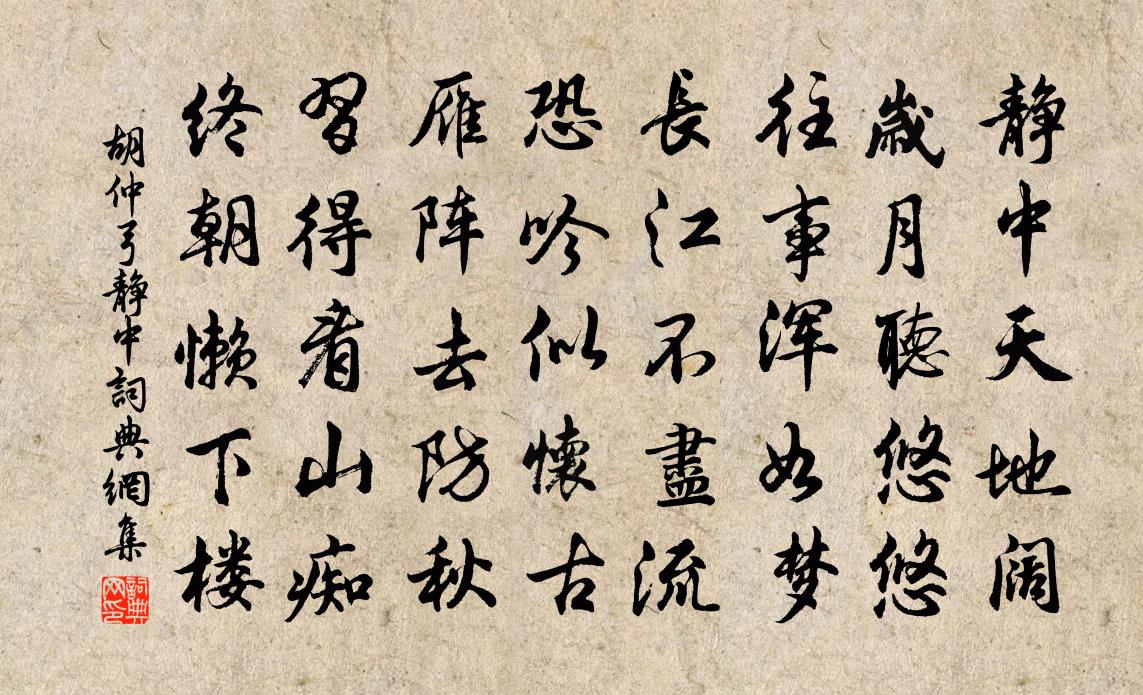 静中天地阔
歳月聽悠悠
往事浑如梦
長江不盡流
恐吟似懷古
雁阵去防秋
習得看山痴
终朝懒下楼
胡仲弓静中詞典網集
詞典网印